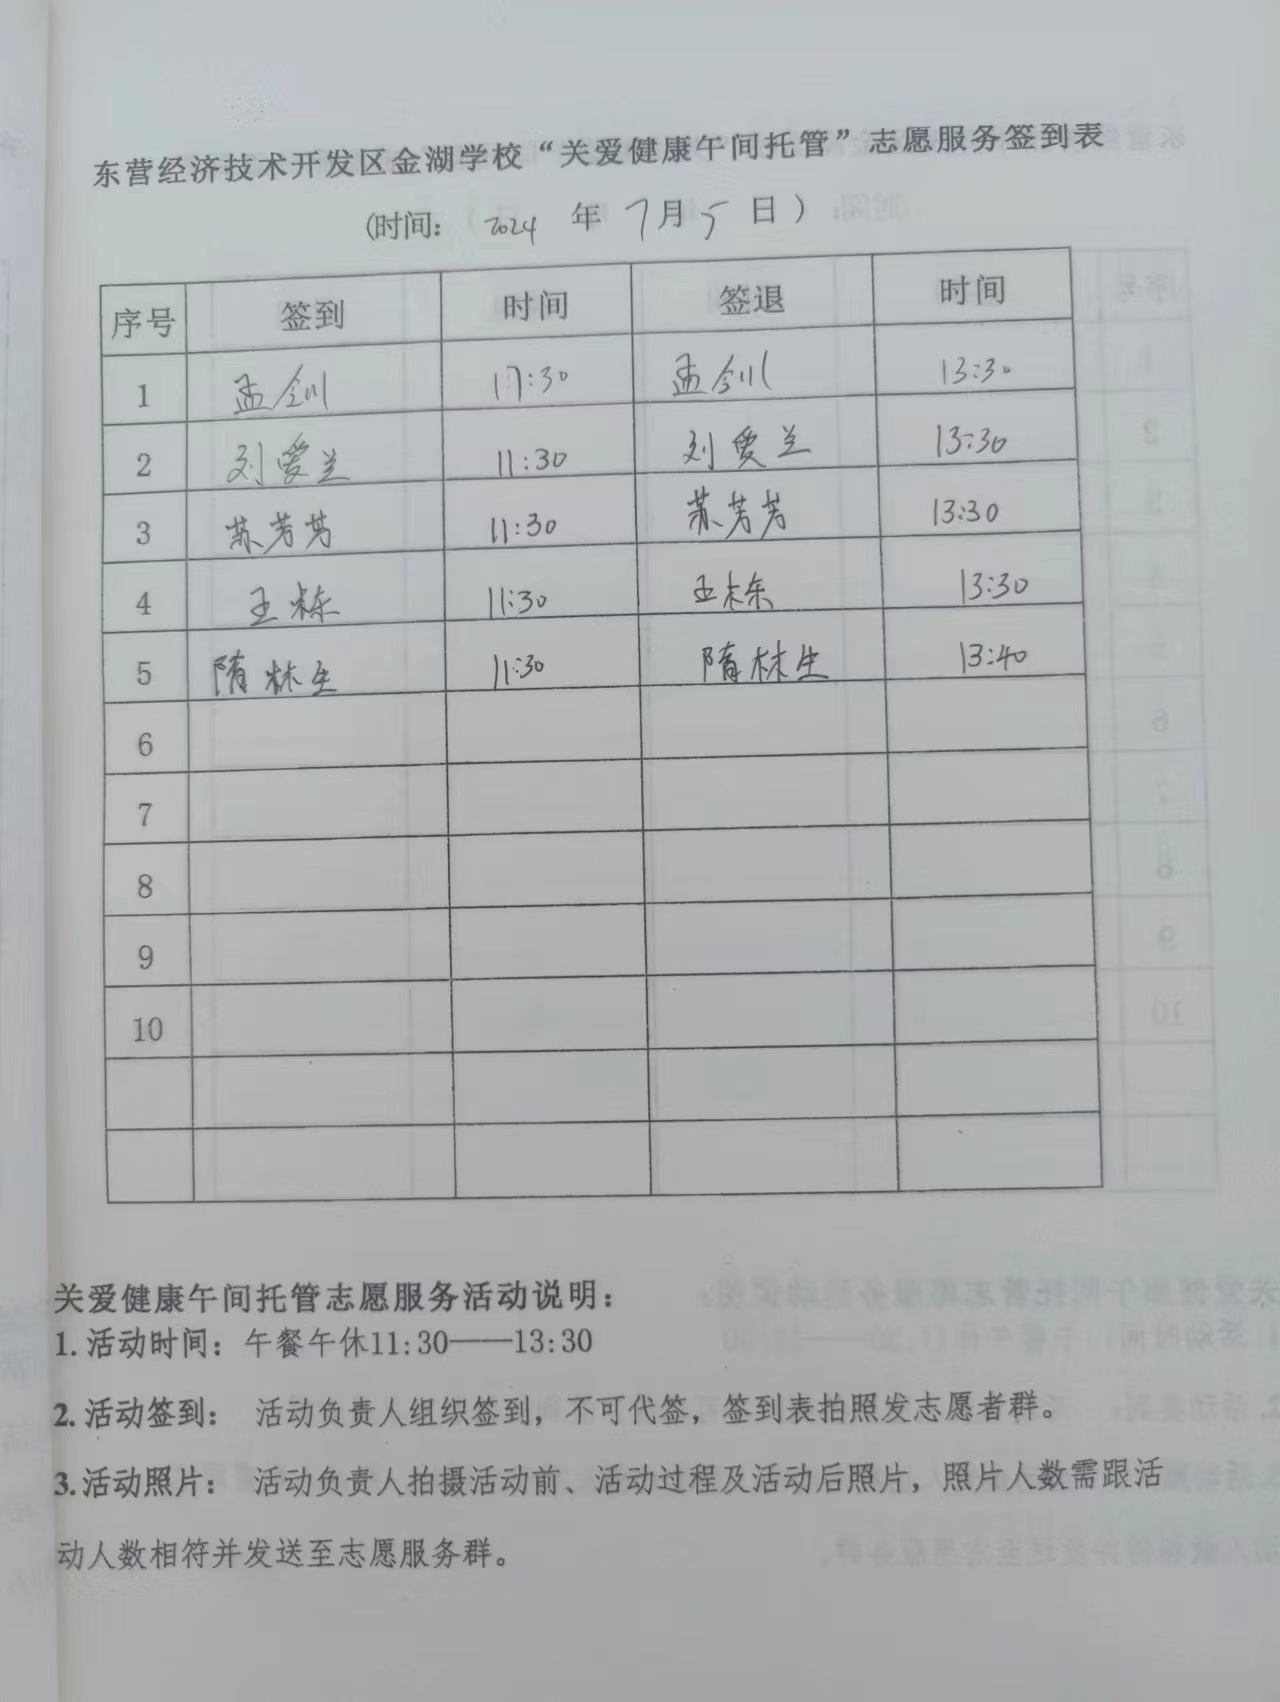 东营经济技术开发区金湖学校“关爱健康午间托管”志愿服务签到表
(时间: 2024 年 7月5 日)
序号 签到 时间 签退 时间
1 孟剑 11:30 孟剑 13:30
2 刘爱兰 11:30 刘爱兰 13:30
3 苏芳芳 11:30 苏芳芳 13:30
4 王栋 11:30 王栋 13:30
5 隋林生 11:30 隋林生 13:40
6
7
8
9
10
关爱健康午间托管志愿服务活动说明:
1.活动时间: 午餐午休11:30——13:30
2.活动签到: 活动负责人组织签到,不可代签,签到表拍照发志愿者群。
3.活动照片: 活动负责人拍摄活动前、活动过程及活动后照片,照片人数需跟活
动人数相符并发送至志愿服务群。